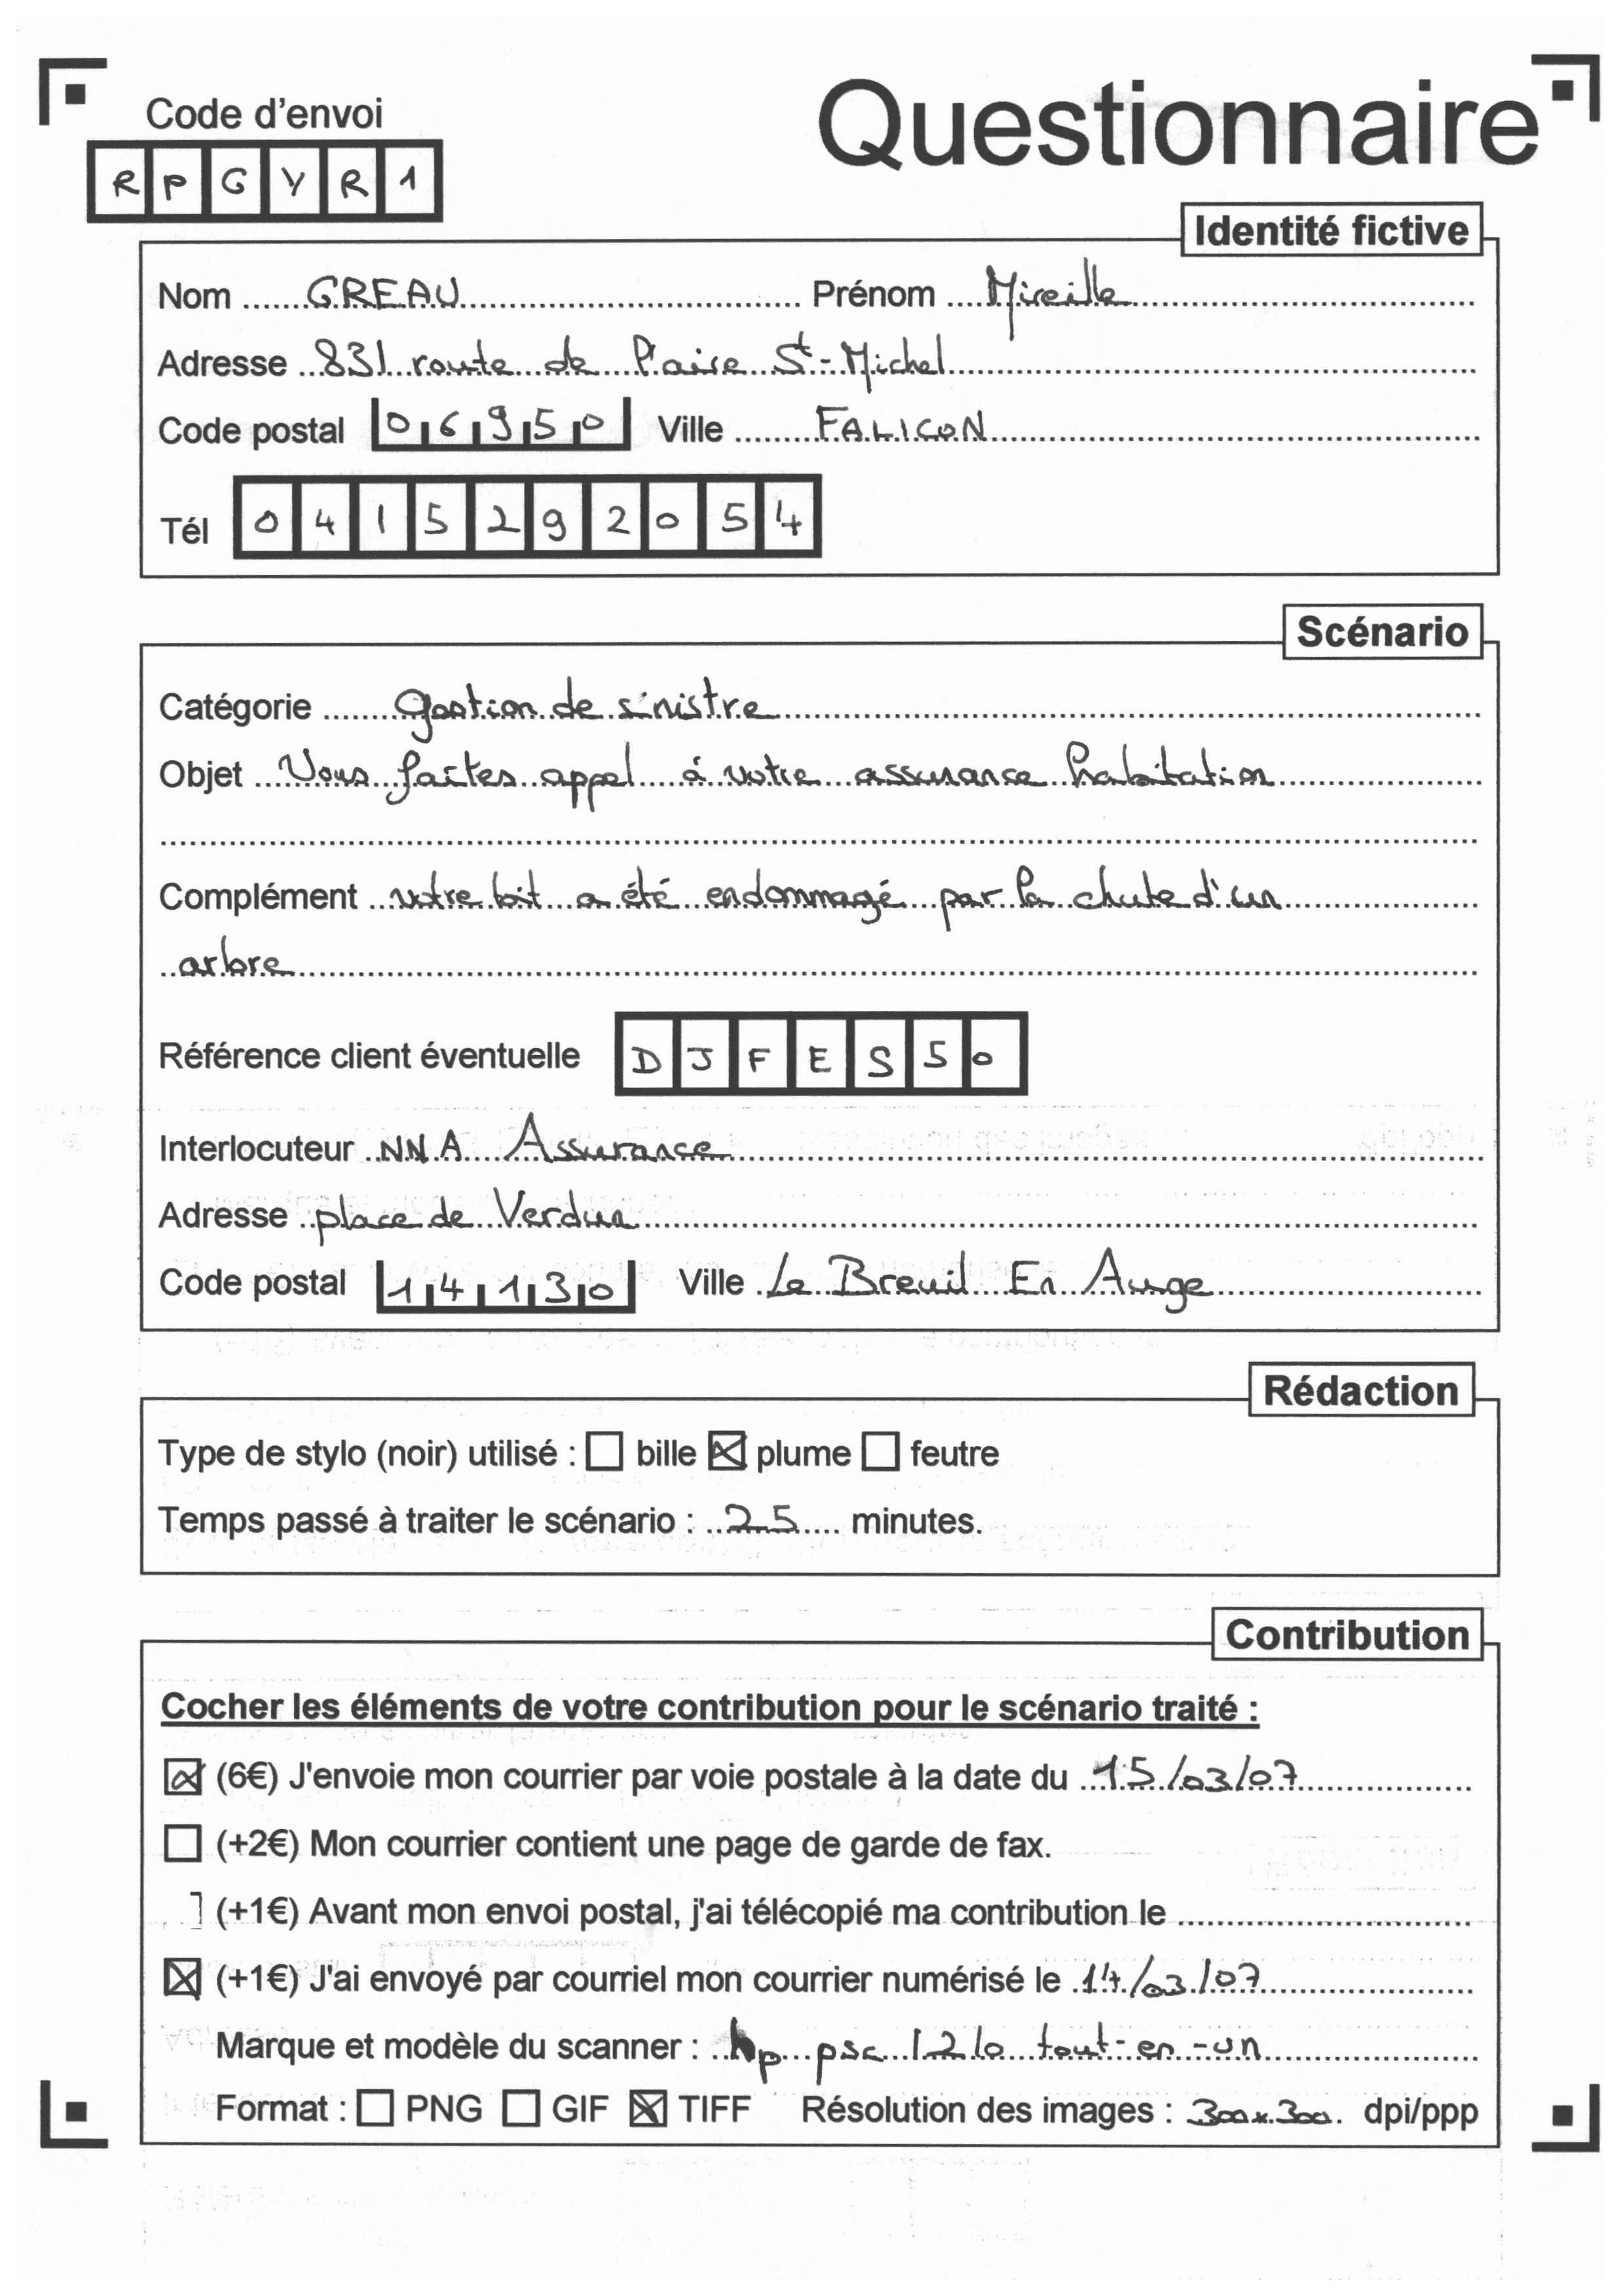 Code d'envoi
Questionnaire
RPGYR1
Identité fictive
Nom GREAU Prénom Mireille
Adresse 831 route de l'aire St-Michel
Code postal 06950 Ville FALICON
Tél 0415292054
Scénario
Catégorie gestion de sinistre
Objet Vous faites appel à votre assurance habitation
Complément votre toit a été endommagé par la chute d'un
arbre
Référence client éventuelle DJFES50
Interlocuteur NNA Assurance
Adresse place de Verdun
Code postal 14130 Ville Le Breuil En Auge
Rédaction
Type de stylo (noir) utilisé : bille plume feutre
Temps passé à traiter le scénario : 25 minutes.
Contribution
Cocher les éléments de votre contribution pour le scénario traité :
(6€) J'envoie mon courrier par voie postale à la date du 15/03/07
(+2€) Mon courrier contient une page de garde de fax.
(+1€) Avant mon envoi postal, j'ai télécopié ma contribution le
(+1€) J'ai envoyé par courriel mon courrier numérisé le 14/03/07
Marque et modèle du scanner : hp psc 1210 tout-en-un
Format : PNG GIF TIFF Résolution des images : 300x300 dpi/ppp